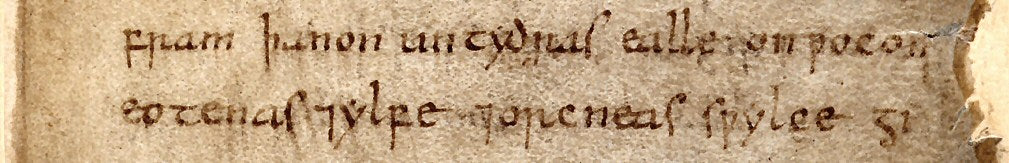 fram þanon untydras ealle onƿocon
eotenas ⁊ylfe ⁊orcneas sƿylce gi